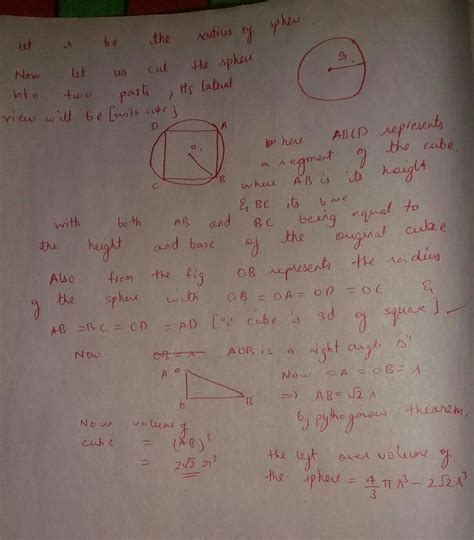 let r be the radius of sphere.
Now let us cut the sphere
into two parts, its lateral
view will be [with cube]
r
D A
O.
C B
where ABCD represents
a segment of the cube.
where AB is its height
& BC its base
with both AB and BC being equal to
the height and base of the original cube
Also from the fig OB represents the radius
of the sphere with OB = OA = OD = OC &
AB = BC = CD = AD [∵ cube is 3d of square]
Now OB = r. AOB is a right angle Δ
A
O B
Now OA = OB = r
⇒ AB = √2 r
by pythagorous theorem.
Now volume of
cube = (AB)³
= 2√2 r³
the left over volume of
the sphere = 4/3 π r³ - 2√2 r³